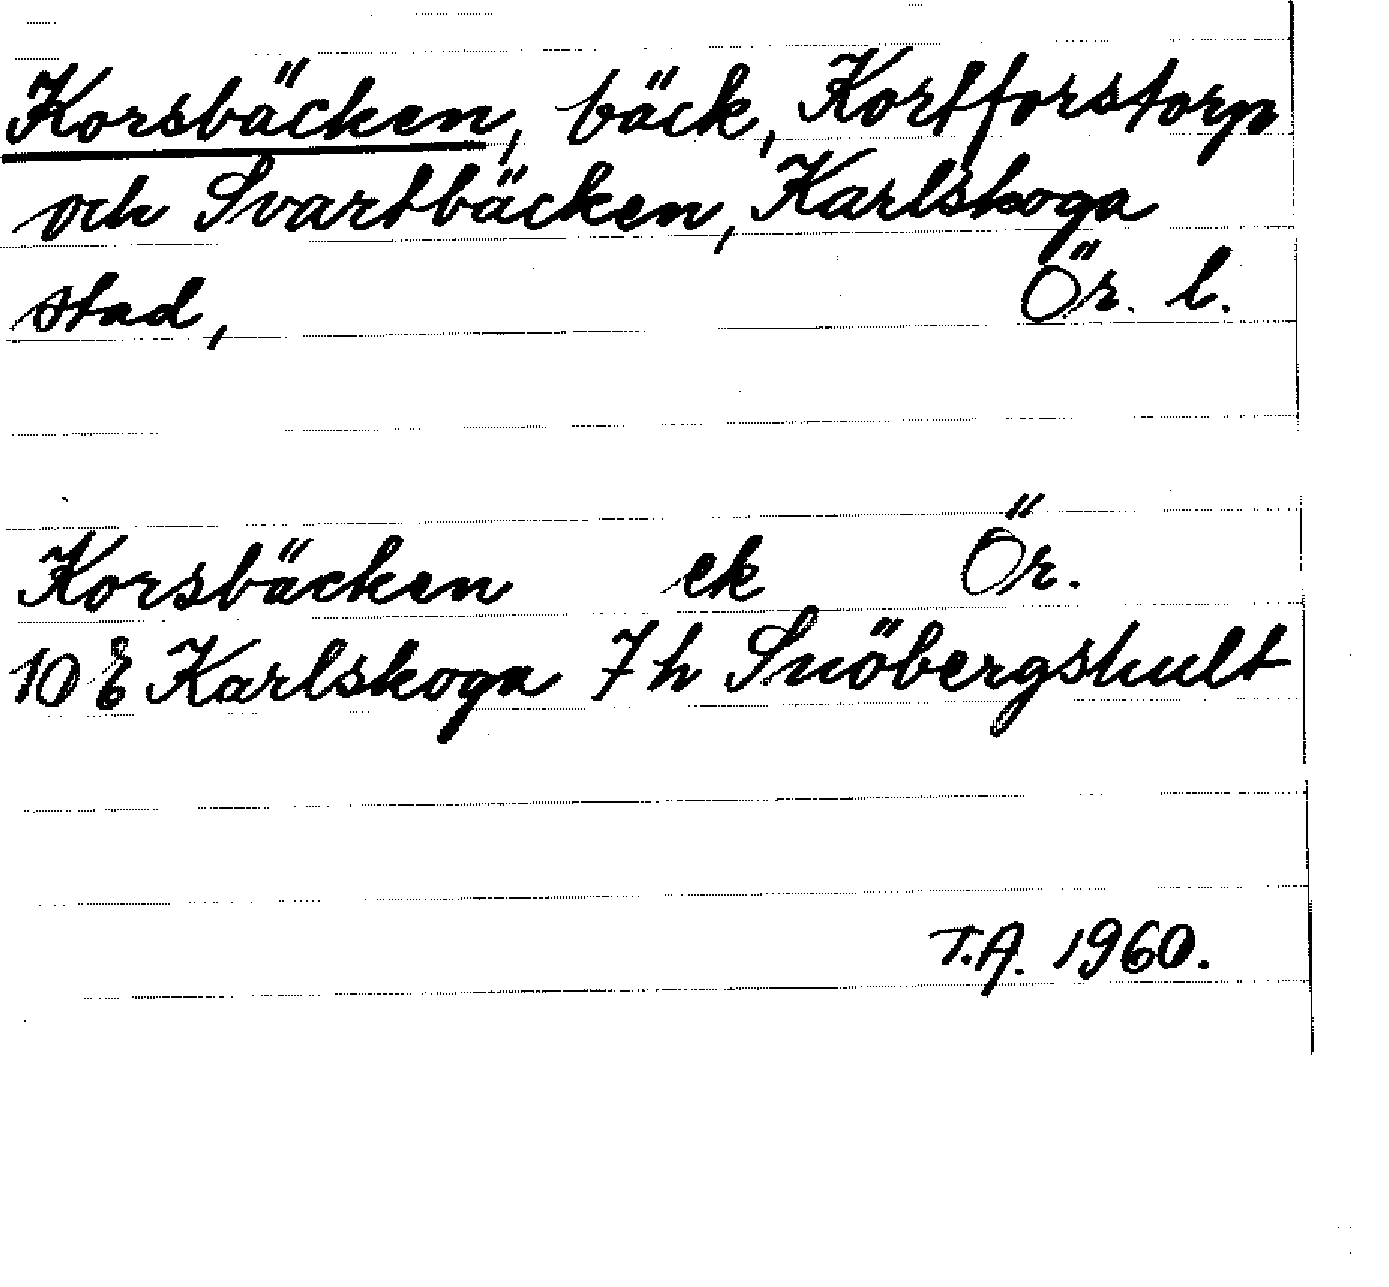 Korsbäcken, bäck, Kortforstorp
och Svartbäcken, Karlskoga
stad, Ör. l.
Korsbäcken ek Ör.
10 E Karlskoga 7 h Snöbergshult
T.A. 1960.